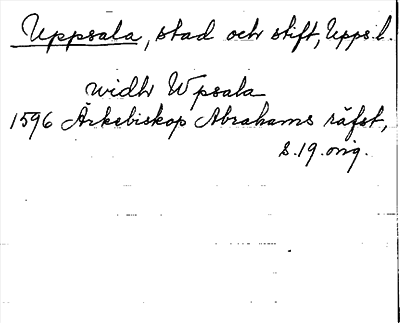 Uppsala, stad och stift, Upps.l.
widh Wpsala
1596 Ärkebiskop Abrahams räfst,
s.19.orig.